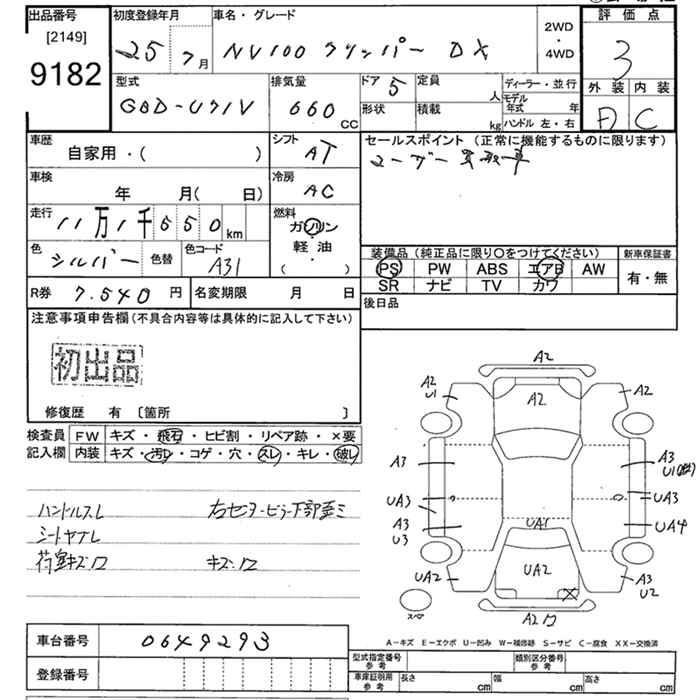 出品番号 初度登録年月 車名・グレード 評価点
[2149] 25 7月 NV100 クリッパー DX 2WD・4WD 3
9182
型式 排気量 ドア 5 定員 人 ディーラー・並行 外装 内装
GBD-U71V 660 CC 形状 積載 kg モデル年式 年 D C
ハンドル 左・右
車歴 シフト セールスポイント (正常に機能するものに限ります)
自家用・( ) AT ユーザー買取車
車検 冷房
年 月(日) AC
走行 燃料
11万1千550km ガソリン・軽油・( )
色 色替 色コード 装備品(純正品に限り○をつけてください) 新車保証書
シルバー A31 PS PW ABS エアB AW 有・無
R券 7,540円 名変期限 月 日 SR ナビ TV カワ
後日品
注意事項申告欄(不具合内容等は具体的に記入して下さい)
初出品
修復歴 有 [箇所 ]
検査員 FW キズ・飛石・ヒビ割・リペア跡・×要
記入欄 内装 キズ・汚レ・コゲ・穴・スレ・キレ・破レ
ハンドルスレ 右センターピラー下部歪ミ
シートヤブレ
荷室キズワ キズ・ワ
A2
A2 U1 A2 A2
A3 A3
U1
UA3 UA3
A3 U3 UA1 UA4
UA2 UA2 A3 U2
スペア A2ワ
車台番号 0649293
A-キズ E-エクボ U-凹み W-補修跡 S-サビ C-腐食 XX-交換済
登録番号 型式指定番号 参考 類別区分番号 参考
車庫証明用 参考 長さ cm 幅 cm 高さ cm